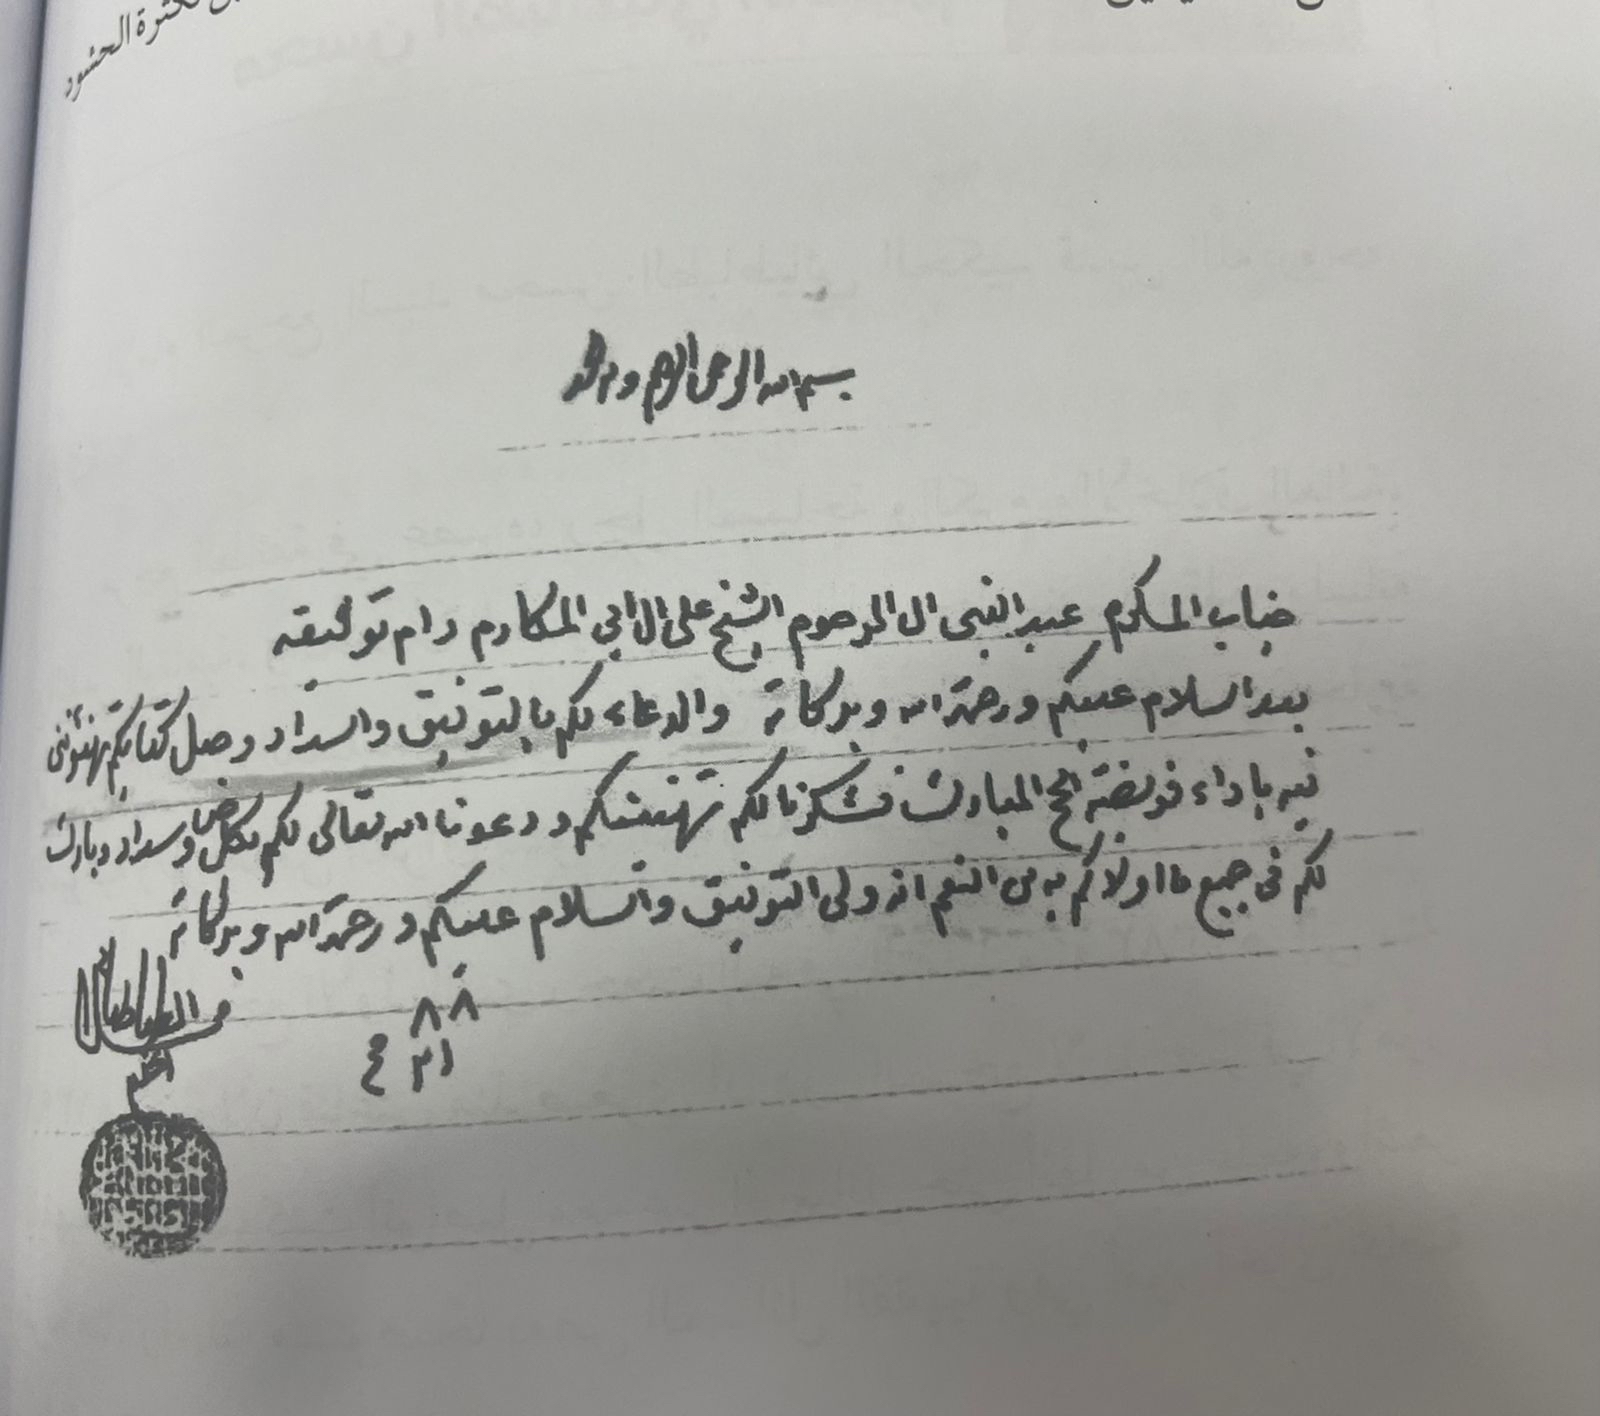 كثرة الحشود
بسم الله الرحمن الرحيم وله الحمد
جناب المكرم عبد النبي ال المرحوم الشيخ علي ال ابي المكارم دام توفيقه
بعد السلام عليكم ورحمة الله وبركاته والدعاء لكم بالتوفيق والسداد وصل كتابكم تهنئوني
فيه باداء فريضة الحج المبارك فشكرنا لكم تهنئتكم ودعونا الله تعالى لكم بكل وسداد وبارك
لكم في جميع ما اولاكم به من النعم انه ولي التوفيق والسلام عليكم ورحمة الله وبركاته
الطباطبائي
الحكيم